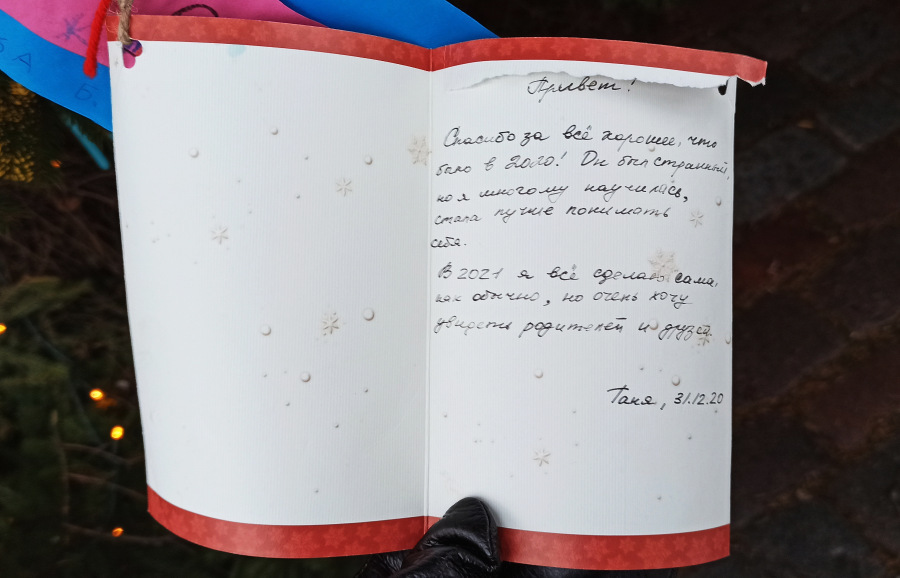 Б А
Б.
Привет!
Спасибо за всё хорошее, что
было в 2020! Он был странный,
но я многому научилась,
стала лучше понимать
себя.
В 2021 я всё сделаю сама,
как обычно, но очень хочу
увидеть родителей и друзей.
Таня, 31.12.20